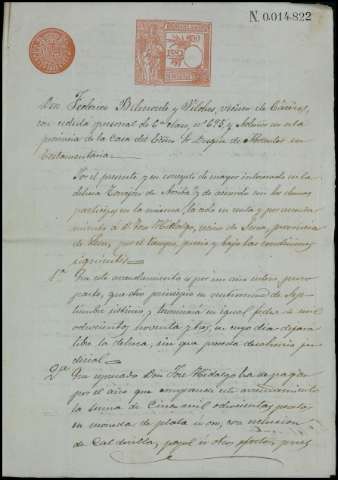 N. 0.014.822
Don Federico Belmonte y Vilches, vecino de Cáceres,
con cédula personal de 6ª clase, nº 695, y Admor en esta
provincia de la Casa del Excmo Sr Duque de Abrantes en
testamentaria.
Por el presente y en concepto de mayor interesado en la
dehesa Torrejon de Arriba y de acuerdo con los demas
partícipes en la misma, la doy en renta y por
á D. José Hidalgo, vecino de provincia
de por el tiempo, precio y bajo las condiciones
siguientes.
1ª Que este arrendamiento es por un año entero
que dió principio en veintinueve de Sep-
tiembre último y terminará en igual fecha de mil
ochocientos noventa y tres, en cuyo dia dejará
libre la dehesa, sin que preceda desahucio ju-
dicial.
2ª Que espresado Don José Hidalgo ha de pagar
por el año que comprende este arrendamiento
la suma de Cinco mil ochocientas pesetas
en moneda de plata ú oro, con exclusion
de calderilla, papel ú otros efectos, pues